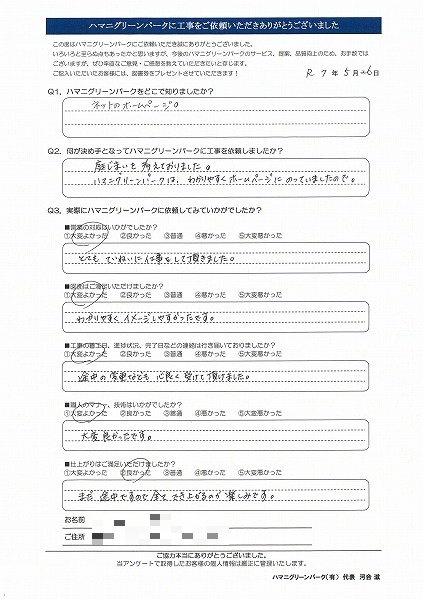 ハマニグリーンパークに工事をご依頼いただきありがとうございました
この度はハマニグリーンパークにご依頼いただき誠にありがとうございました。
いろいろと至らぬ点もあったかと思いますが、今後のハマニグリーンパークのサービス、提案、品質向上のため、お手数では
ございますが、ぜひ率直なご意見・ご感想を教えていただきたいと存じます。
ご記入いただいたお客様には、図書券をプレゼントさせていただきます！
R 7年 5月 26日
Q1. ハマニグリーンパークをどこで知りましたか？
ネットのホームページ。
Q2. 何が決め手となってハマニグリーンパークに工事を依頼しましたか？
庭じまいを考えておりました。
ハマニグリーンパークは、わかりやすくホームページにのっていましたので。
Q3. 実際にハマニグリーンパークに依頼してみていかがでしたか？
■営業の対応はいかがでしたか？
①大変よかった ②良かった ③普通 ④悪かった ⑤大変悪かった
とても ていねいに仕事をして頂きました。
■図面はご満足いただけましたか？
①大変よかった ②良かった ③普通 ④悪かった ⑤大変悪かった
わかりやすく イメージしやすかったです。
■工事の着工日、進捗状況、完了日などの連絡は行き届いておりましたか？
①大変よかった ②良かった ③普通 ④悪かった ⑤大変悪かった
途中の変更なども 心良く 受けて頂けました。
■職人のマナー、技術はいかがでしたか？
①大変よかった ②良かった ③普通 ④悪かった ⑤大変悪かった
大変良かったです。
■仕上がりはご満足いただけましたか？
①大変よかった ②良かった ③普通 ④悪かった ⑤大変悪かった
まだ 途中ですので 全て でき上がるのが 楽しみです。
お名前
ご住所
ご協力本当にありがとうございました。
当アンケートで取得したお客様の個人情報は厳正に管理いたします。
ハマニグリーンパーク（有） 代表 河合 滋